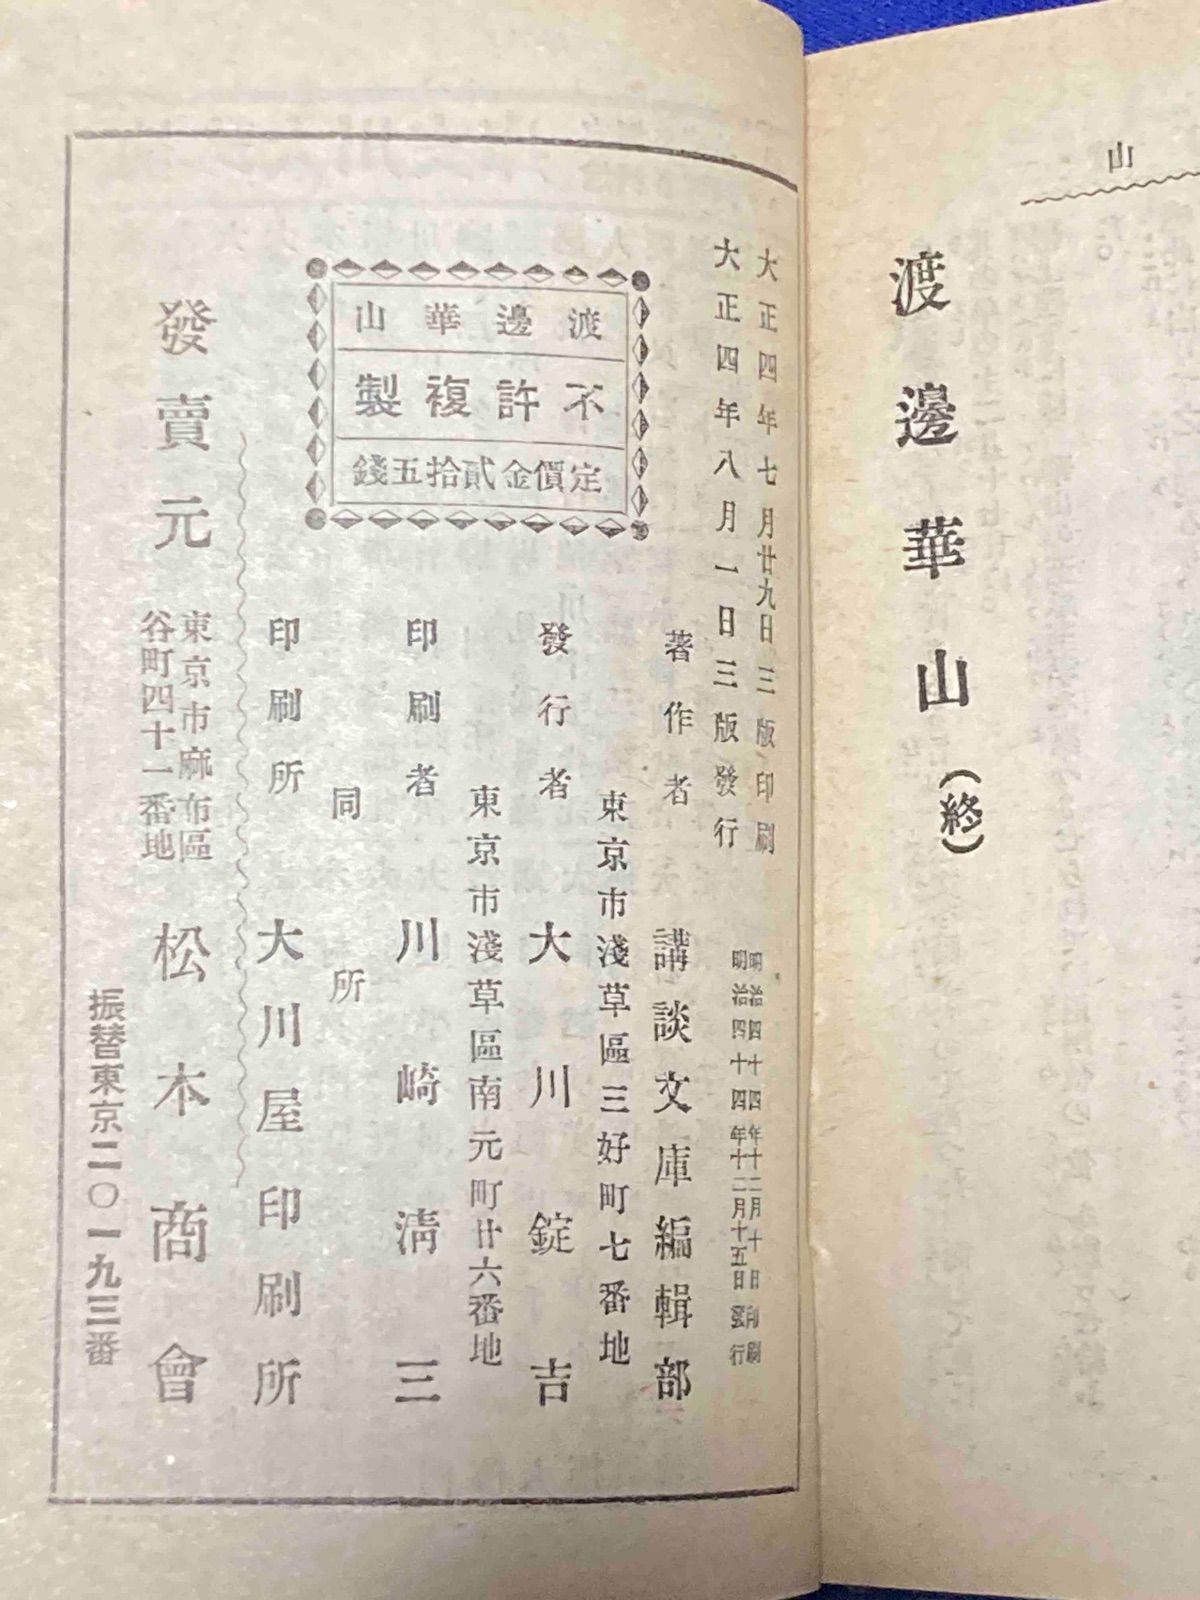 山
渡邊華山(終)
明治四十四年十二月十日印刷
明治四十四年十二月十五日發行
大正四年七月廿九日三版印刷
大正四年八月一日三版發行
渡邊華山
不許複製
定價金貳拾五錢
著作者 講談文庫編輯部
東京市淺草區三好町七番地
發行者 大川錠吉
東京市淺草區南元町廿六番地
印刷者 川崎淸三
同所
印刷所 大川屋印刷所
發賣元
東京市麻布區
谷町四十一番地
松本商會
振替東京二〇一九三番